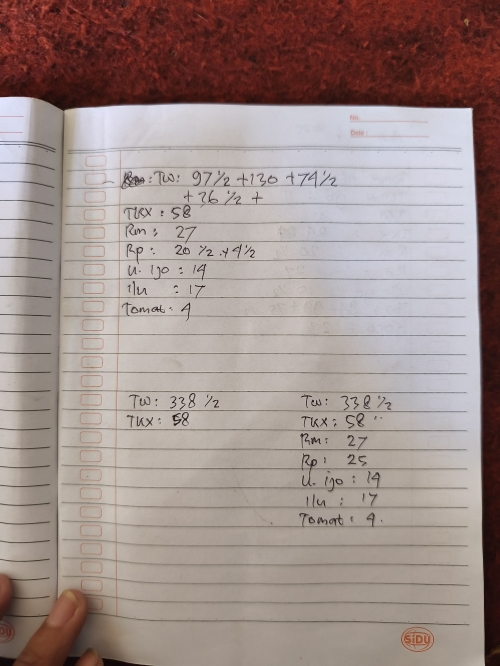 No.
Date :
TW: 97 1/2 + 130 + 74 1/2
+ 36 1/2 +
TKX : 58
Rm : 27
Rp : 20 1/2 + 4 1/2
U. ijo : 14
1/u : 17
Tomat : 4
TW : 338 1/2
TKX : 58
TW : 338 1/2
TKX : 58
Rm : 27
Rp : 25
U. ijo : 14
1/u : 17
Tomat : 4.
SIDU
SIDU